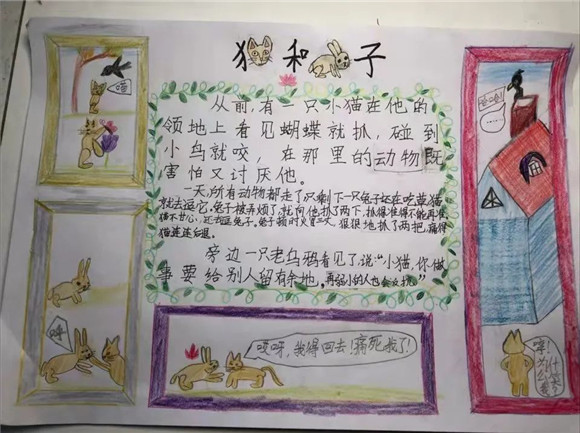 猫和兔子
从前，有一只小猫在他的
领地上看见蝴蝶就抓，碰到
小鸟就咬，在那里的动物既
害怕又讨厌他。
一天，所有动物都走了只剩下一只兔子还在吃草，猫
就去逗它，兔子被弄烦了，就向他抓了两下，抓得准得不能再准
猫不甘心，还去逗兔子，兔子顿时火冒三丈，狠狠地抓了两把，痛得
猫连连后退。
旁边一只老乌鸦看见了，说："小猫，你做
事要给别人留有余地，再弱小的人也会反抗"
哎呀，我得回去！痛死我了！
哼！